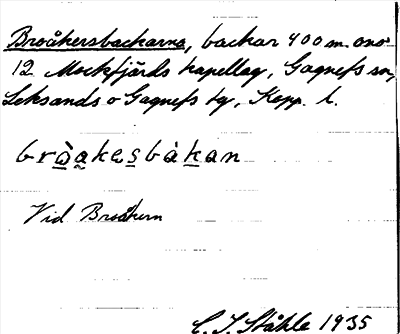 Broåkersbackarna, backar 400 m ono
12 Mockfjärds kapellag, Gagnefs sn,
Leksands o Gagnefs tg, Kopp. l.
bràakesbàkan
Vid Broåkern
C. I. Ståhle 1935